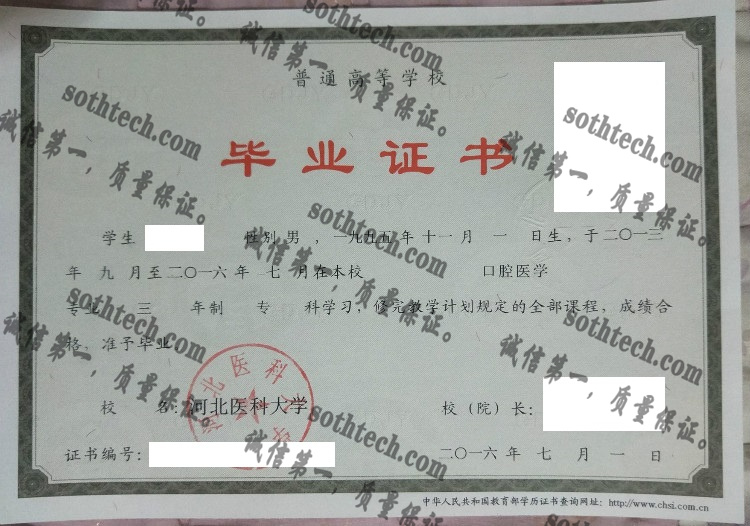 普通高等学校
毕业证书
学生 性别 男 ，一九九五年 十一 月 一 日生，于二〇一三
年 九 月至二〇一六年 七 月在本校 口腔医学
专业 三 年制 专 科学习，修完教学计划规定的全部课程，成绩合
格，准予毕业
校 名：河北医科大学
校（院）长：
证书编号：
二〇一六年 七 月 一 日
河北医科大学
中华人民共和国教育部学历证书查询网址：http://www.chsi.com.cn
sothtech.com
诚信第一，质量保证。
sothtech.com
诚信第一，质量保证。
sothtech.com
诚信第一，质量保证。
sothtech.com
诚信第一，质量保证。
sothtech.com
诚信第一，质量保证。
sothtech.com
诚信第一，质量保证。
sothtech.com
诚信第一，质量保证。